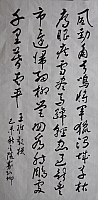 風勁角弓鳴將軍獵渭城草枯
鷹眼疾雪盡馬蹄輕忽過新豐
市還歸細柳營回看射雕處
千里暮雲平
王維觀獵